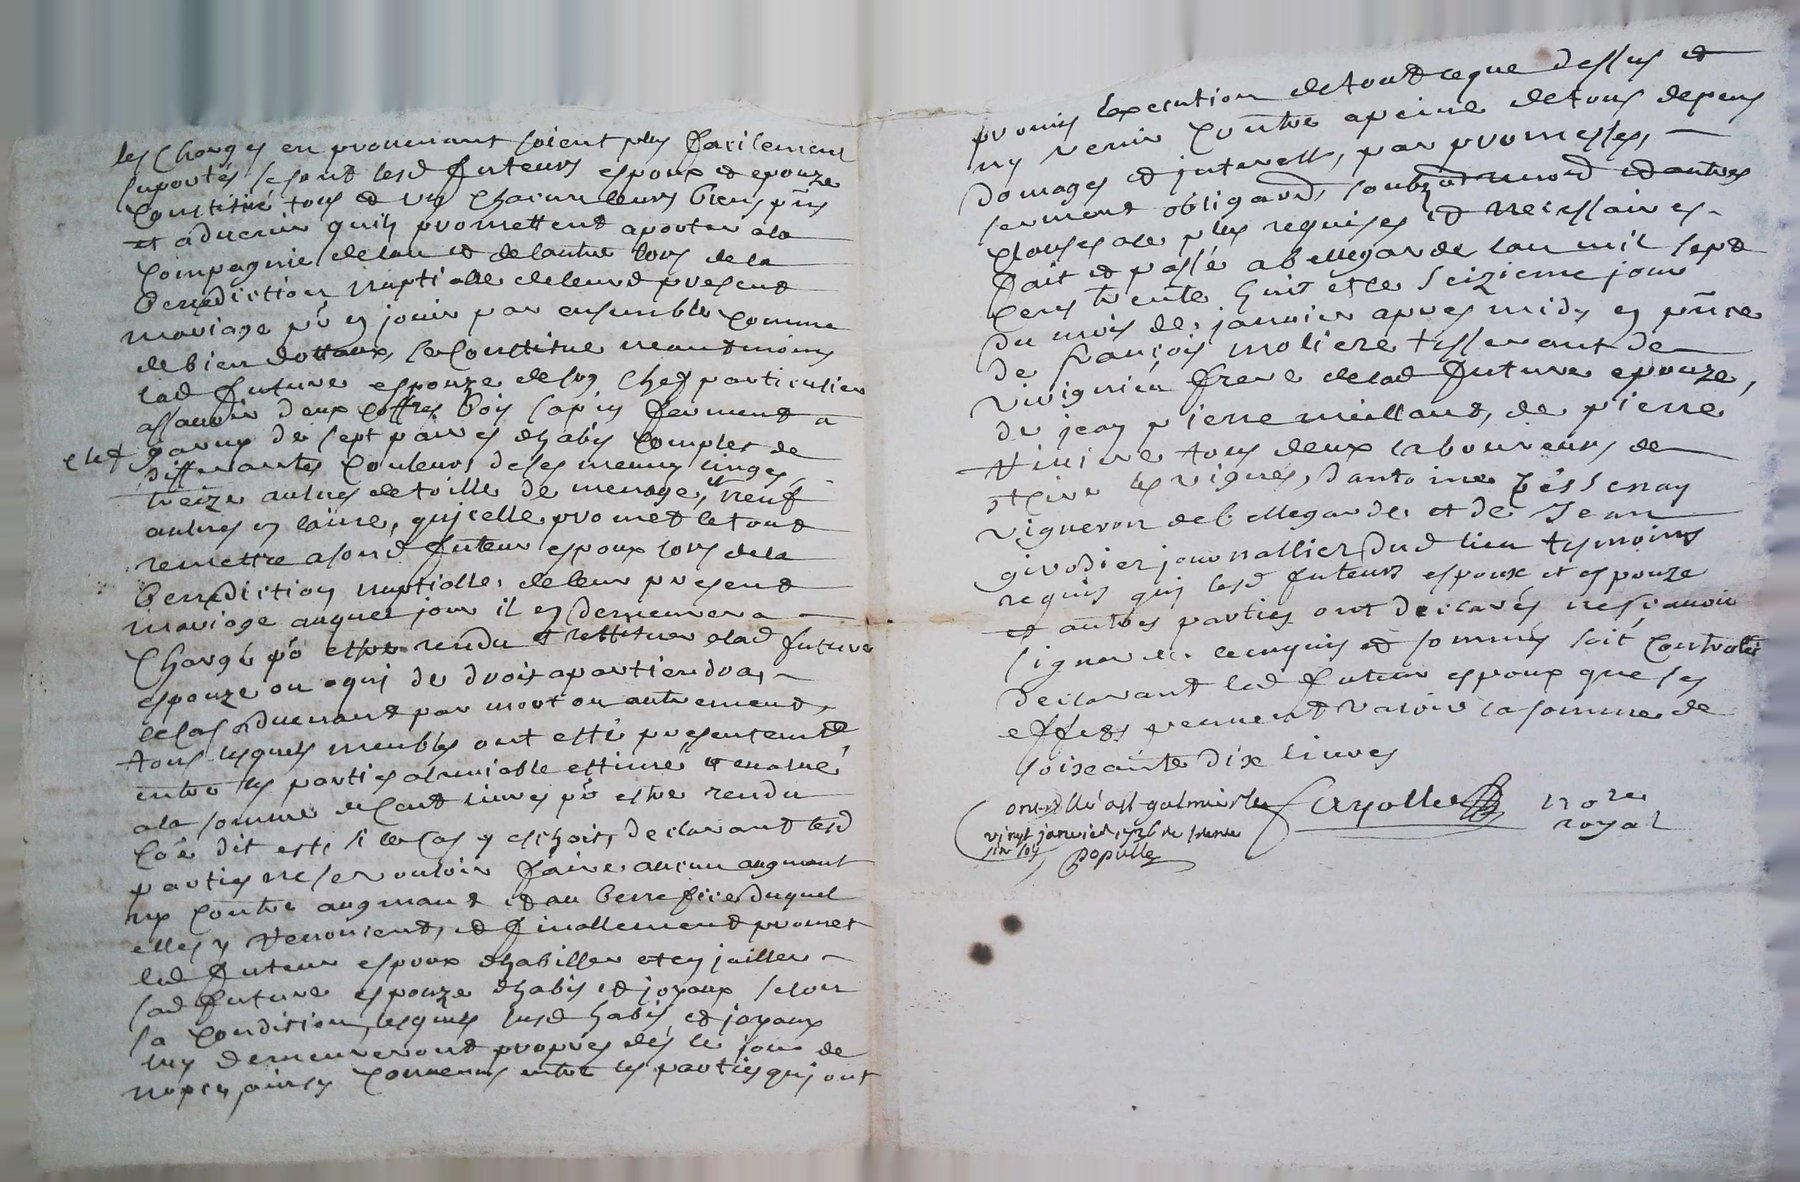 les charges en provenant soient plus facilement
suportés se sont lesd futeurs espoux et epouze
constitué tous et un chacun leurs biens pñs
et advenir quils promettent aporter a la
compagnie de lun et de lautre lors de la
benediction nuptialle de leurd present
mariage pō en jouir par ensemble comme
de bien dottaux, se constitue neantmoins
lad future espouze de son chef particulier
assavoir deux coffres bois sapin fermant a
clef garny de sept paires dhabis complet de
differantes couleurs de ses menus linges,
treize aulnes de toille de menage, neuf
aulnes en laine, quicelle promet le tout
remettre a sond futeur espoux lors de la
benediction nuptialle de leur present
mariage auquel jour il en demeurera
chargé pō estre rendu et restituer a lad future
espouze ou a qui de droit apartiendra,
le cas advenant par mort ou autrement,
tous lesquels meubles ont esté presentemt
entre les parties a lamiable estimé et evalué
a la somme de cent livres pō estre rendu
coē dit est si le cas y eschoit, declarant lesd
parties ne se vouloir faire aucun augmant
ny contre augmant et au benefice duquel
elles y renoncent, et finallement promet
led futeur espoux dhabiller et enjoailler
sad future espouze dhabis et joyaux selon
sa condition, lesquels susd habis et joyaux
luy demeureront propres dés le jour de
nopces, ainsy convenus entre les parties qui ont
promis lexecution de tout ce que dessus et
ny venir contre a peine de tous depens
domages et interests, par promesses,
serment obligaōns, soubz et autres
clauses a ce plus requises et necessaires
fait et passé a bellegarde lan mil sept
cens trente huit et le seizieme jour
du mois de janvier apres midy en pñce
de françois moliere tisserant de
virignieu frere de lad future epouze,
de jean pierre meillant, de pierre
tiviere tous deux laboureurs de
st cire les vignes, dantoine
vigneron de bellegarde et de Jean
girodier journallier dud lieu tesmoins
requis qui lesd futeurs espoux et espouze
et autres parties ont declarés ne scavoir
signer de ce enquis et sommés soit controllé
declarant led futeur espoux que ses
effets peuvent valoir la somme de
soixante dix livres
controllé a st galmier le
vingt janvier
Fayolle
nore
royal
Populle